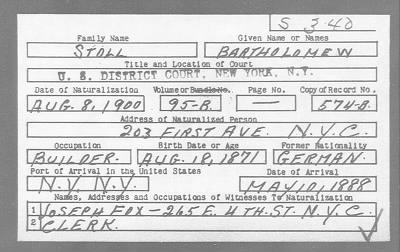 S 340
Family Name Given Name or Names
STOLL BARTHOLOMEW
Title and Location of Court
U. S. DISTRICT COURT, NEW YORK, N.Y.
Date of Naturalization Volume or Bundle No. Page No. Copy of Record No.
AUG. 8, 1900 95-B. — 574-B.
Address of Naturalized Person
203 FIRST AVE. N.Y.C.
Occupation Birth Date or Age Former Nationality
BUILDER. AUG. 18, 1871 GERMAN.
Port of Arrival in the United States Date of Arrival
N.Y. N.Y. MAY 10, 1888
Names, Addresses and Occupations of Witnesses To Naturalization
1 JOSEPH FOX — 265 E. 4 TH. ST. N.Y.C.
2 CLERK.